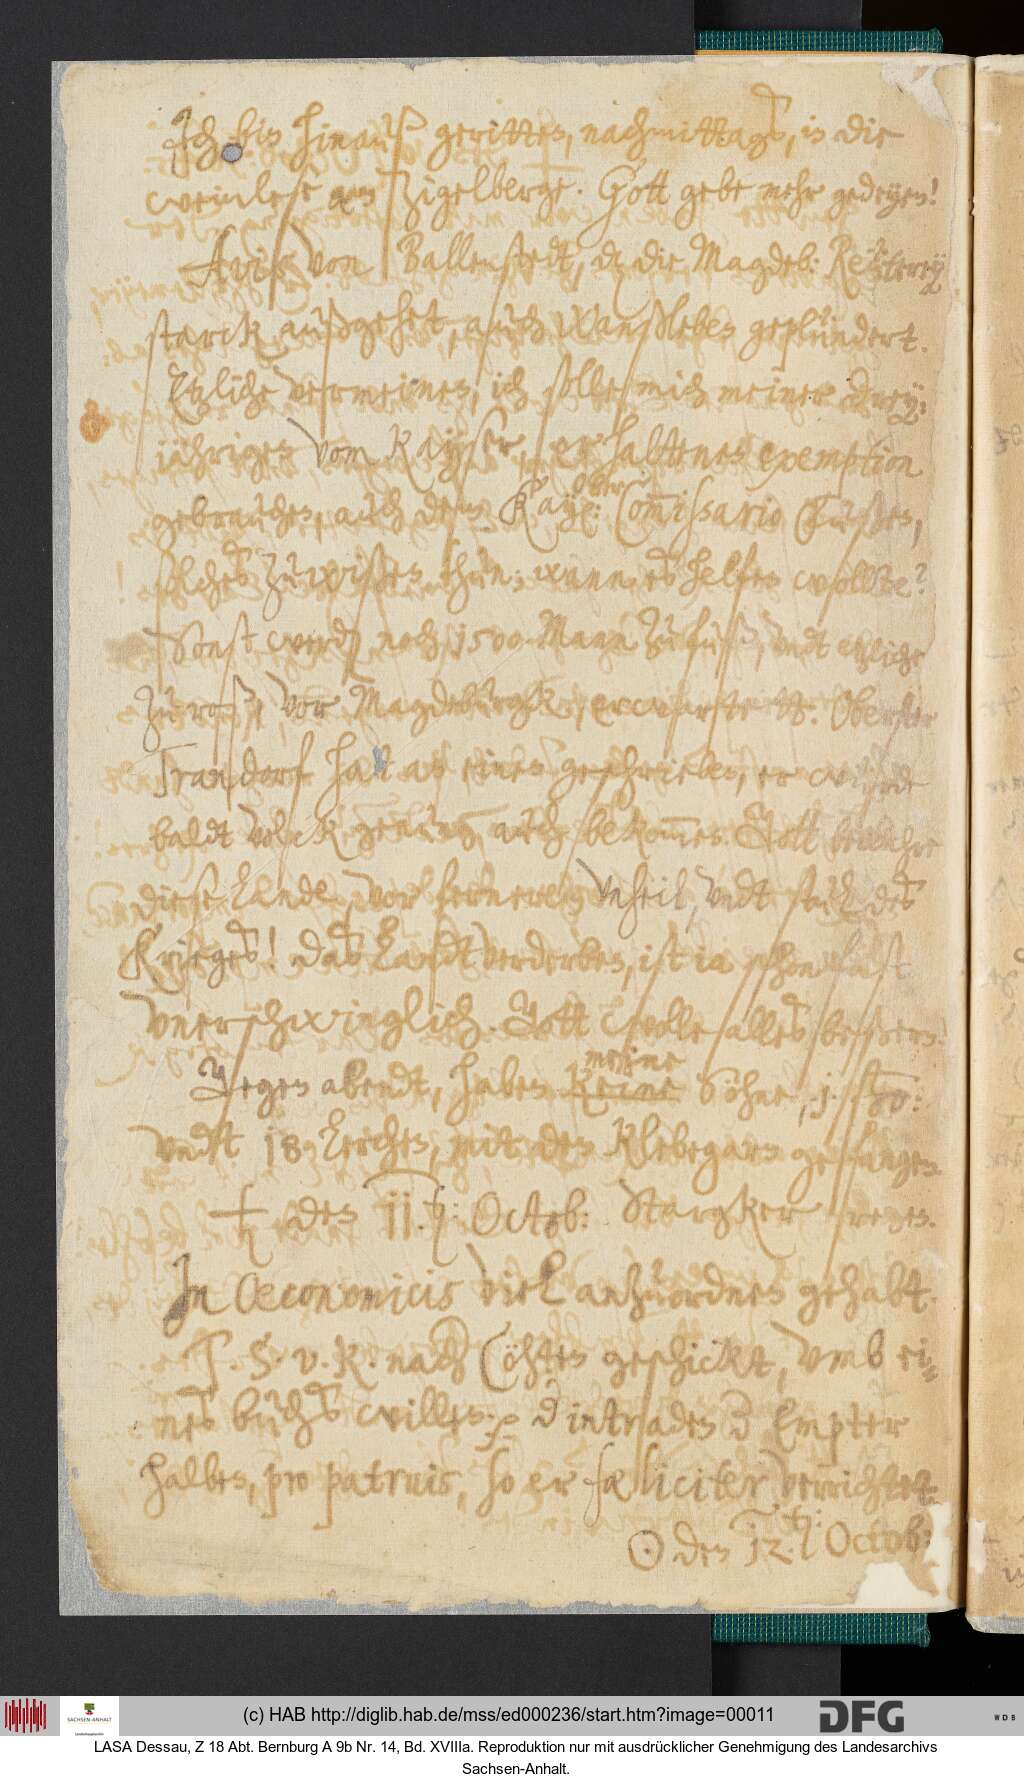 Ich bin hinauß geritten, nachmittags, in die
weinlese am Zigelberge. Gott gebe mehr gedeyen!
Avis von Ballenstedt, dz die Magdeb: Reütterey
starck außgehet, auch Wanßleben geplündert.
Etzliche vermeinen, ich solle mich meiner drey¦
iährigen vom Kayser, erhaltenen exemption
gebrauchen, auch dem Kay: ober Commissario
solches zu wißen thun; wann es helfen wollte?
Sonst werden noch 1500 Mann zu fuß, undt etzliche
zu roß, vor Magdeburgk, erwartett. Oberster
Trandorf hat an einen geschrieben, er würde
baldt volck genung auch bekommen. Gott bewahre
diese Lande, vor fernerem unheil, undt sturm des
Krieges! Das Landtverderben, ist ia schon fast
unerschwinglich. Gott wolle alles beßern!
Gegen abendt, haben keine meine Söhne, 1 ßo:
undt 18 Lerchen, mit den Klebegarn gefangen.
♄ den 11.ten: Octob: Starcker regen.
In Oeconomicis viel anzuordnen gehabt.
T. S. v. K. nach Cöhten geschickt, umb ei¦
nes buchs willen; et d intraden d Empter
halben, pro patruis, so er fæliciter verrichtet.
☉ den 12.ten: Octob:
(c) HAB http://diglib.hab.de/mss/ed000236/start.htm?image=00011
SACHSEN-ANHALT
DFG
WDB
LASA Dessau, Z 18 Abt. Bernburg A 9b Nr. 14, Bd. XVIIIa. Reproduktion nur mit ausdrücklicher Genehmigung des Landesarchivs
Sachsen-Anhalt.